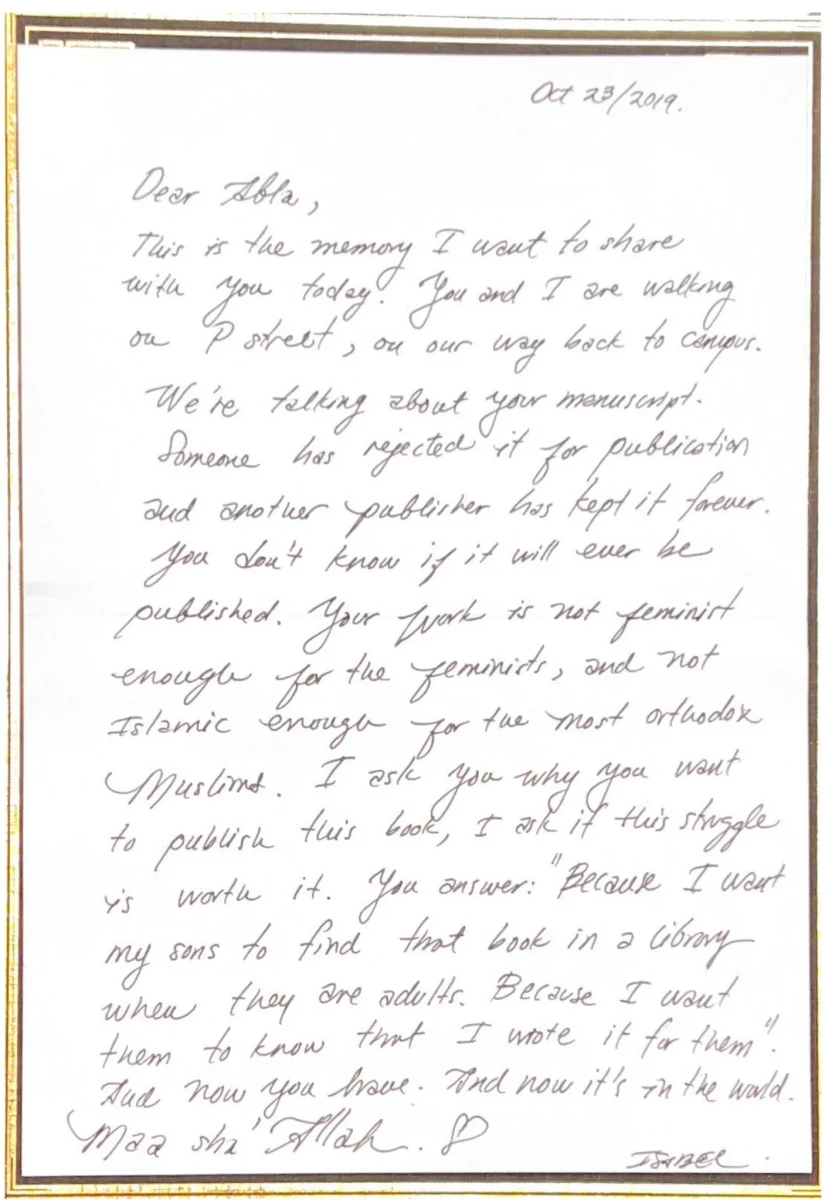 Oct 23/2019.
Dear Abla,
This is the memory I want to share
with you today. You and I are walking
on P street, on our way back to campus.
We're talking about your manuscript.
Someone has rejected it for publication
and another publisher has kept it forever.
You don't know if it will ever be
published. Your work is not feminist
enough for the feminists, and not
Islamic enough for the most orthodox
Muslims. I ask you why you want
to publish this book, I ask if this struggle
is worth it. You answer: "Because I want
my sons to find that book in a library
when they are adults. Because I want
them to know that I wrote it for them".
And now you have. And now it's in the world.
Maa sha' Allah. ♡
ISABEL.